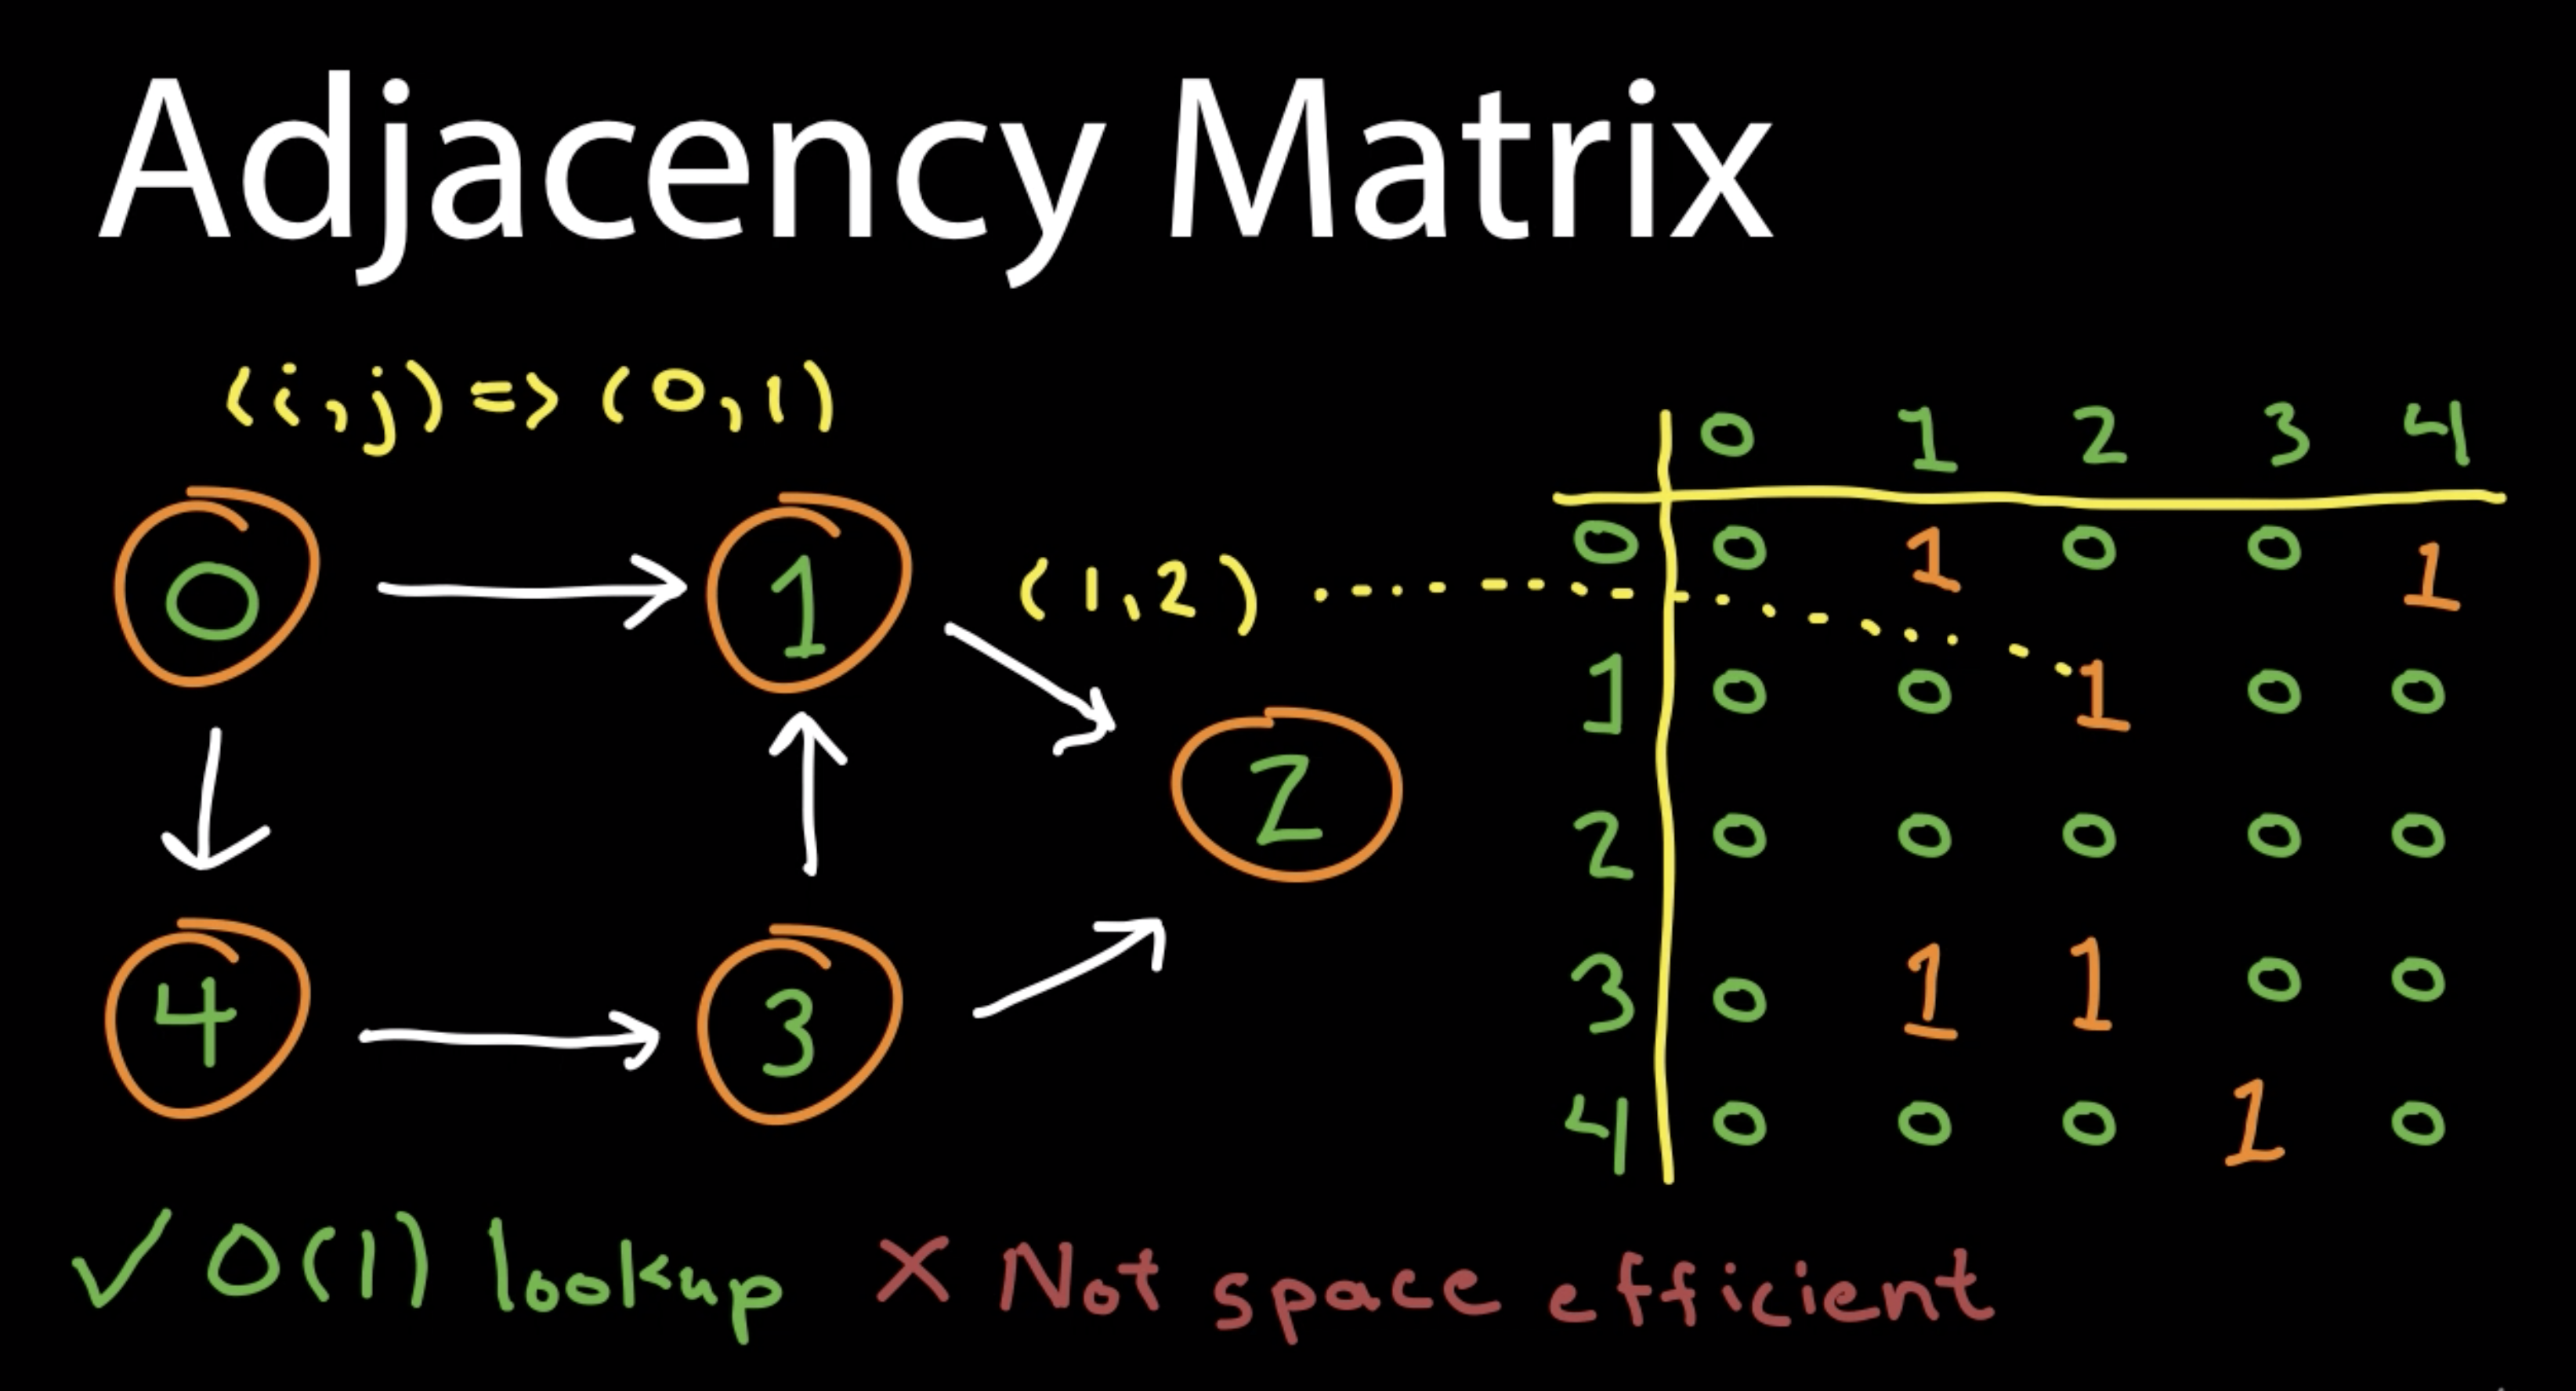 Adjacency Matrix
(i,j) => (0,1)
0 1 2 3 4
0 0 1 0 0 1
0 1 (1,2)
1 0 0 1 0 0
2
2 0 0 0 0 0
3 0 1 1 0 0
4 3
4 0 0 0 1 0
✓ O(1) lookup ✗ Not space efficient